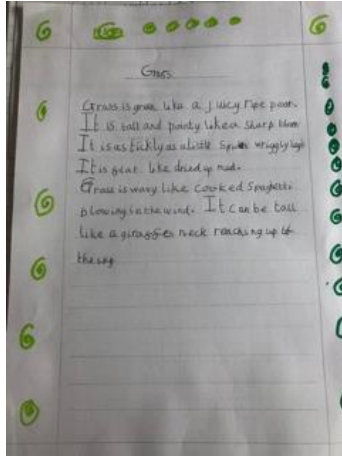 Grass
Grass is green like a juicy ripe pear.
It is tall and pointy like a sharp
It is as tickly as a little wriggly legs
It is like dried up mud.
Grass is wavy like cooked Spaghetti
blowing in the wind. It can be tall
like a giraffes neck reaching up to
the sky